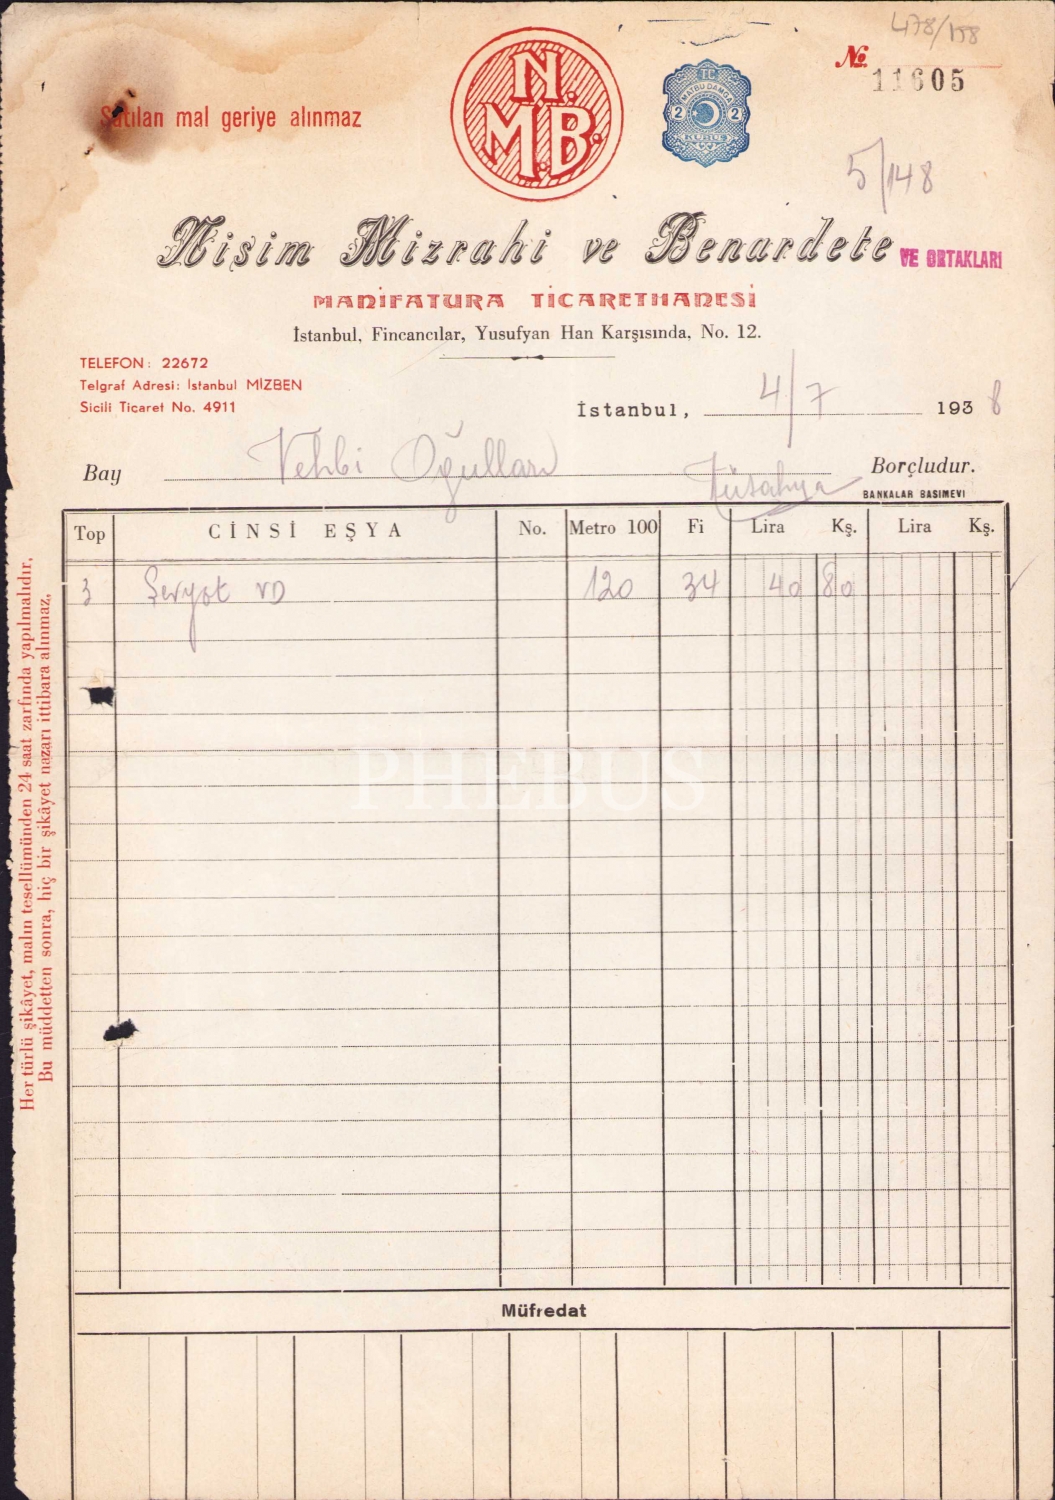 478/158
№ 11605
Satılan mal geriye alınmaz
N.
M.B.
TC
MATBU DAMGA
2 2
KURUŞ
5/148
Nişim Mizrahi ve Benardete VE ORTAKLARI
MANİFATURA TİCARETHANESİ
İstanbul, Fincancılar, Yusufyan Han Karşısında, No. 12.
TELEFON: 22672
Telgraf Adresi: İstanbul MİZBEN
Sicili Ticaret No. 4911
İstanbul, 4/7 1938
Bay Vehbi Oğulları Kütahya Borçludur.
BANKALAR BASIMEVİ
Top CİNSİ EŞYA No. Metro 100 Fi Lira Kş. Lira Kş.
3 Şevyot VD 120 34 40 80
PHEBUS
Müfredat
Her türlü şikâyet, malın tesellümünden 24 saat zarfında yapılmalıdır,
Bu müddetten sonra, hiç bir şikâyet nazarı ittibara alınmaz,